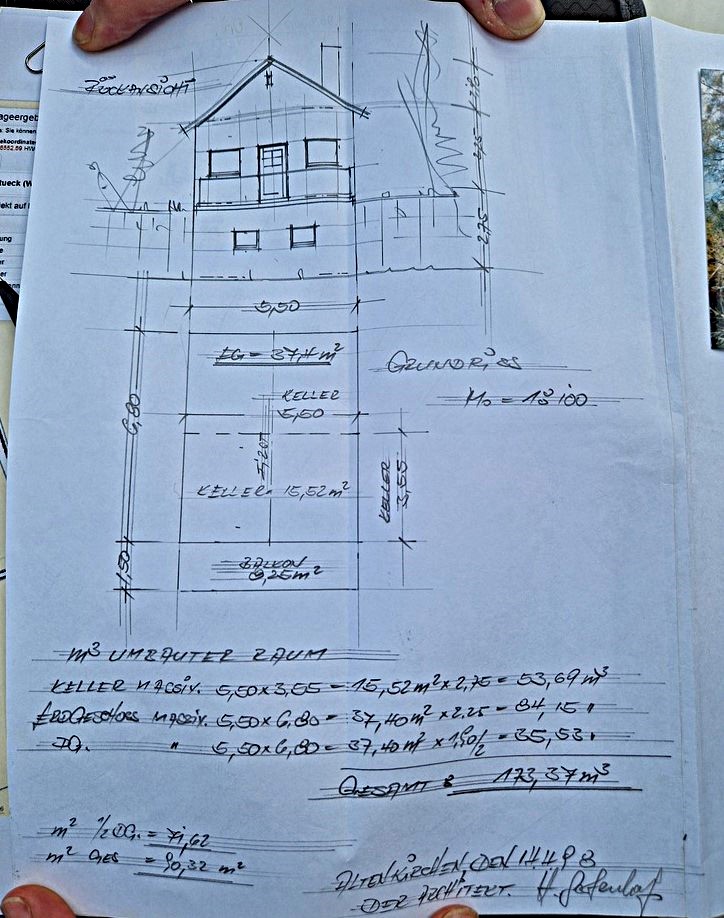 ageergeb
s: Sie können
ekoordinaten
tueck (W
ekt auf
ung
RÜCKANSICHT
1,90
2,25
2,75
5,50
EG = 37,4 m²
GRUNDRISS
KELLER
M. = 1:100
5,50
6,80
KELLER = 15,52 m²
KELLER
3,55
1,50
BALKON
8,25 m²
m³ UMBAUTER RAUM
KELLER MASSIV. 5,50 x 3,55 = 15,52 m² x 2,75 = 53,69 m³
ERDGESCHOSS MASSIV. 5,50 x 6,80 = 37,40 m² x 2,25 = 84,15 "
DG. " 5,50 x 6,80 = 37,40 m² x 1,90/2 = 35,53 "
GESAMT : 173,37 m³
m² 1/2 DG. = 71,62
m² GES = 90,32 m²
ALTENKIRCHEN, DEN 14.4.98
DER ARCHITEKT.